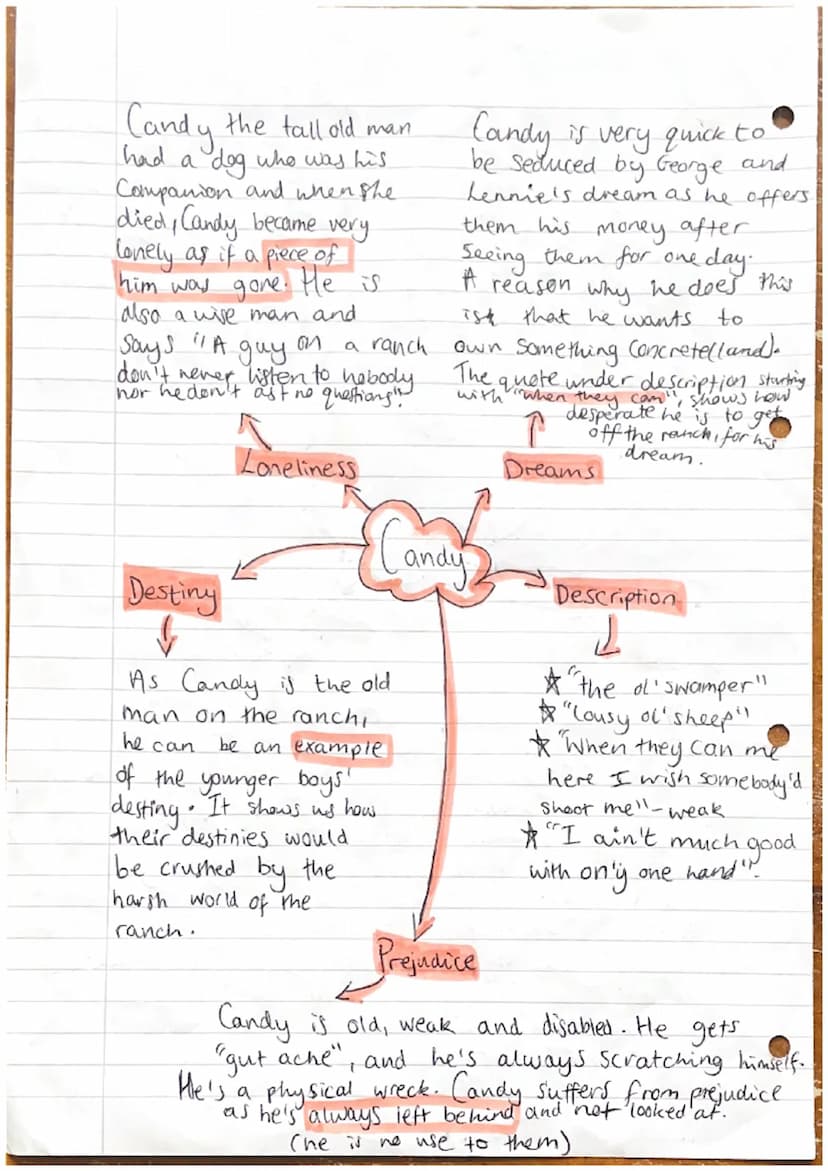 Candy the tall old man
had a dog who was his
Companion and when she
died, Candy became very
lonely as if a piece of
him was gone. He is
also a wise man and
says "A guy on a ranch
don't never listen to nobody
nor he don't ast no questions".
Loneliness
Candy is very quick to
be seduced by George and
Lennie's dream as he offers
them his money after
seeing them for one day.
A reason why he does this
is that he wants to
own something concrete(land).
The quote under description starting
with "when they can", shows how
desperate he is to get
off the ranch, for his
dream.
Dreams
Candy
Destiny
As Candy is the old
man on the ranch,
he can be an example
of the younger boys'
destiny. It shows us how
their destinies would
be crushed by the
harsh world of the
ranch.
Description
"the ol' swamper"
"lousy ol' sheep"
"When they can me
here I wish somebody'd
shoot me" - weak
"I ain't much good
with on'y one hand".
Prejudice
Candy is old, weak and disabled. He gets
"gut ache", and he's always scratching himself.
He's a physical wreck. Candy suffers from prejudice
as he's always left behind and not looked at.
(he is no use to them)